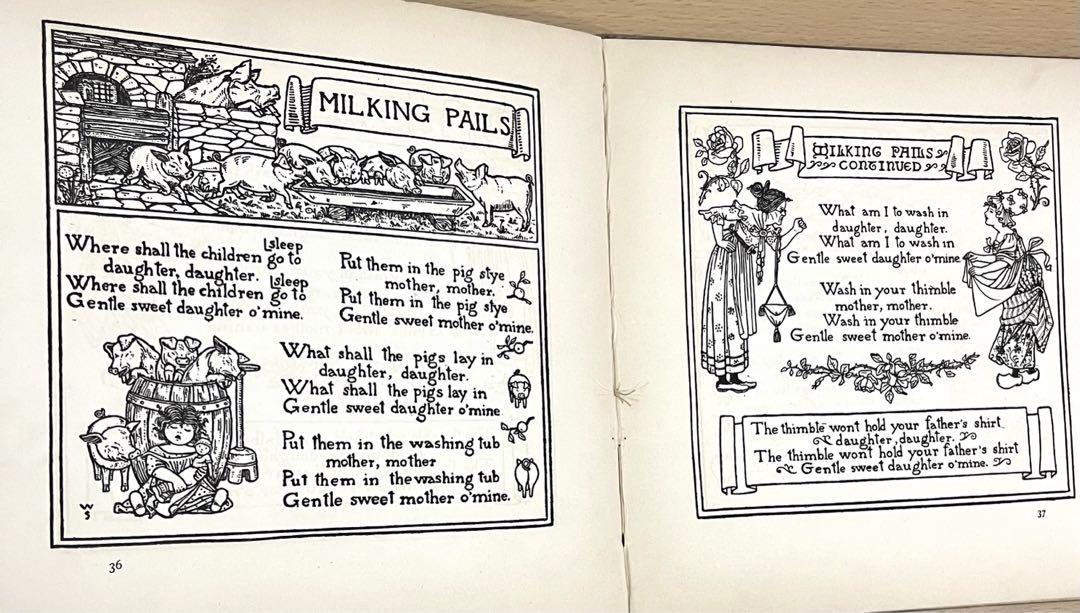 MILKING PAILS
Where shall the children go to sleep
daughter, daughter.
Where shall the children go to sleep
Gentle sweet daughter o'mine.
Put them in the pig stye
mother, mother.
Put them in the pig stye
Gentle sweet mother o'mine.
What shall the pigs lay in
daughter, daughter.
What shall the pigs lay in
Gentle sweet daughter o'mine
Put them in the washing tub
mother, mother
Put them in the washing tub
Gentle sweet mother o'mine.
WS
36
MILKING PAILS
CONTINUED
What am I to wash in
daughter, daughter.
What am I to wash in
Gentle sweet daughter o'mine
Wash in your thimble
mother, mother.
Wash in your thimble
Gentle sweet mother o'mine.
The thimble wont hold your father's shirt
daughter, daughter.
The thimble wont hold your father's shirt
Gentle sweet daughter o'mine.
37